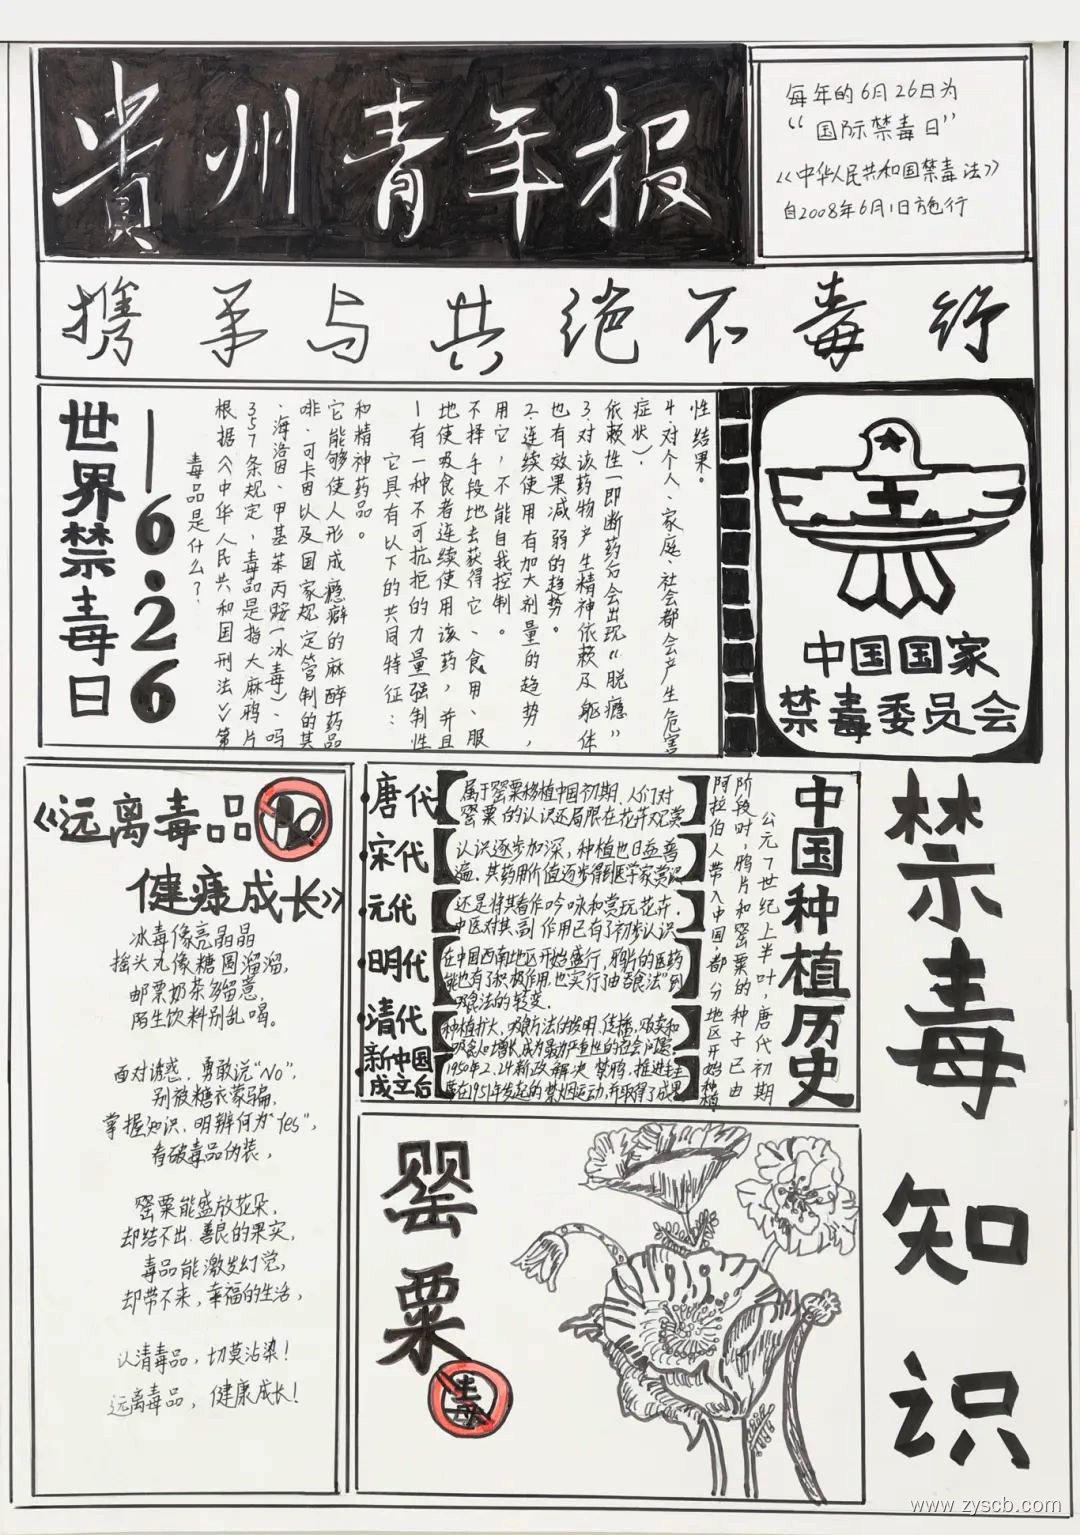 貴州青年报
每年的6月26日为
“国际禁毒日”
《中华人民共和国禁毒法》
自2008年6月1日施行
携手与共绝不毒行
世界禁毒日
—6.26
毒品是什么?
根据《中华人民共和国刑法》第
357条规定,毒品是指大麻鸦片
、海洛因、甲基苯丙胺(冰毒)、吗
啡、可卡因以及国家规定管制的其
它能够使人形成瘾癖的麻醉药品
和精神药品。
它具有以下的共同特征:
1有一种不可抗拒的力量强制性
地使吸食者连续使用该药,并且
不择手段地去获得它、食用、服
用它,不能自我控制。
2.连续使用有加大剂量的趋势,
也有效果减弱的趋势。
3.对该药物产生精神依赖及躯体
依赖性一即断药后会出现“脱瘾”
症状).
4.对个人、家庭、社会都会产生危害
性结果。
中国国家
禁毒委员会
《远离毒品
健康成长》
冰毒像亮晶晶
摇头丸像糖圆溜溜,
邮票奶茶多留意,
陌生饮料别乱喝。
面对诱惑,勇敢说“No”,
别被糖衣蒙骗,
掌握知识,明辨何为“Yes”,
看破毒品伪装,
罂粟能盛放花朵,
却结不出善良的果实,
毒品能激发幻觉,
却带不来,幸福的生活,
认清毒品,切莫沾染!
远离毒品,健康成长!
中国种植历史
公元7世纪上半叶,唐代初期
阶段时,鸦片和罂粟的种子已由
阿拉伯人带入中国,部分地区开始种植
唐代
属于罂粟移植中国初期,人们对
罂粟的认识还局限在花卉观赏
宋代
认识逐步加深,种植也日益普
遍,其药用价值逐步得到医学家赏识
元代
还是将其看作吟咏和赏玩花卉,
中医对其副作用已有了初步认识
明代
在中国西南地区开始盛行,鸦片的医药
能也有了积极作用,也实行了由“吞食法”到
吸食法的转变.
清代
种植扩大,吸食方法的发明、传播,吸卖和
吸食人口增长,成为最为严重性的社会问题.
新中国
成立后
1950年2.24新政解决禁鸦,推进
在1951年发起的禁烟运动,并取得了成果
罂粟
毒
禁毒知识
www.zyscb.com